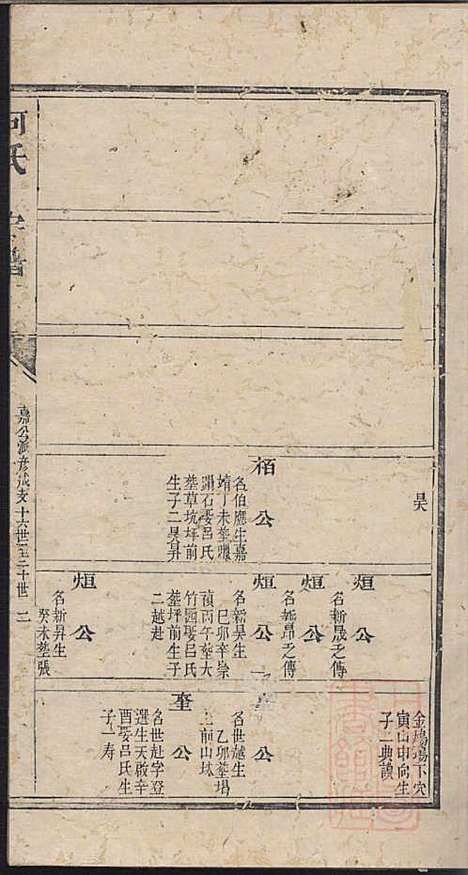 昊
栢公
名伯應生嘉
靖丁未塟
淵石娶呂氏
塟草坑坪前
生子二昊昇
烜公
名新晟之傳
烜公
名新昂之傳
烜公
名新昊生
己卯辛崇
禎丙午塟大
竹園娶呂氏
塟坪前生子
二越赴
烜公
名新昇生
癸未塟張
金塲塲下穴
寅山申向生
子二典讀
公
名世越生
乙卯塟塲
上前山坺
奎公
名世赴字登
選生天啟辛
酉娶呂氏生
子一寿
何氏宗譜
十六世至二十世 二